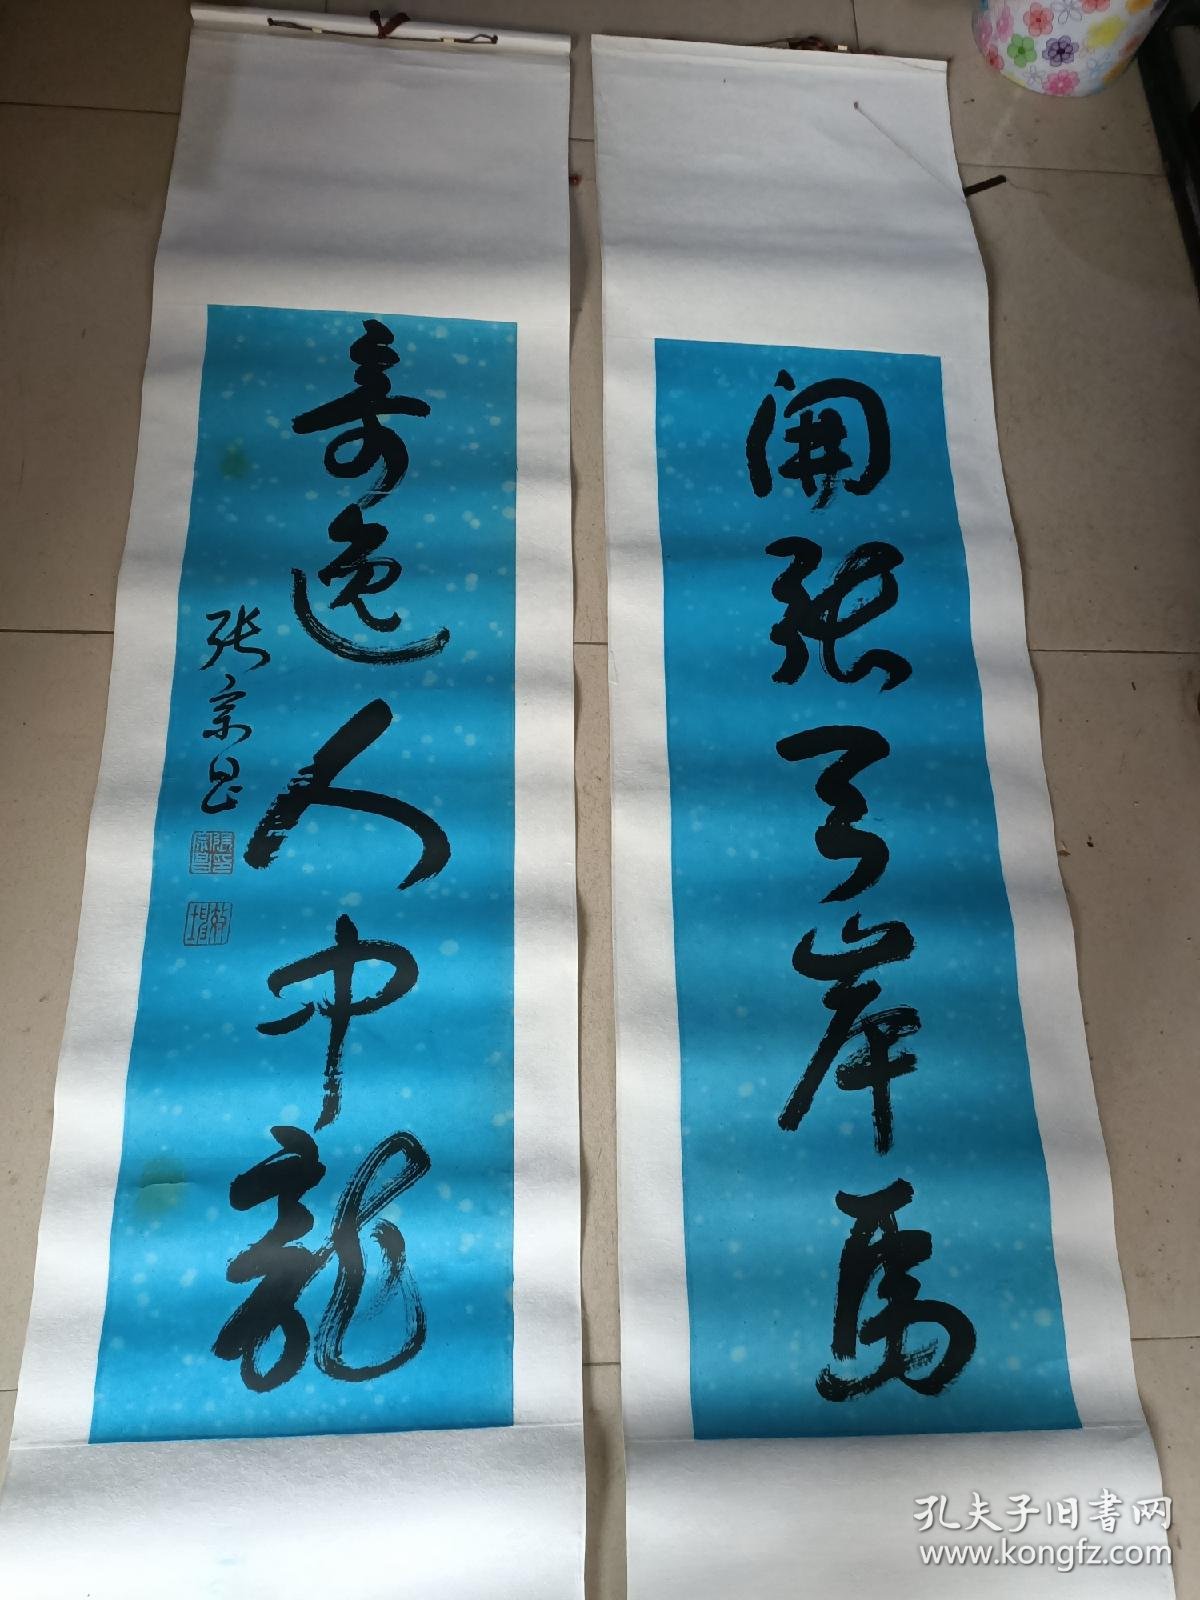 開張天岸馬
奇逸人中龍
张宗昌
孔夫子旧书网
www.kongfz.com